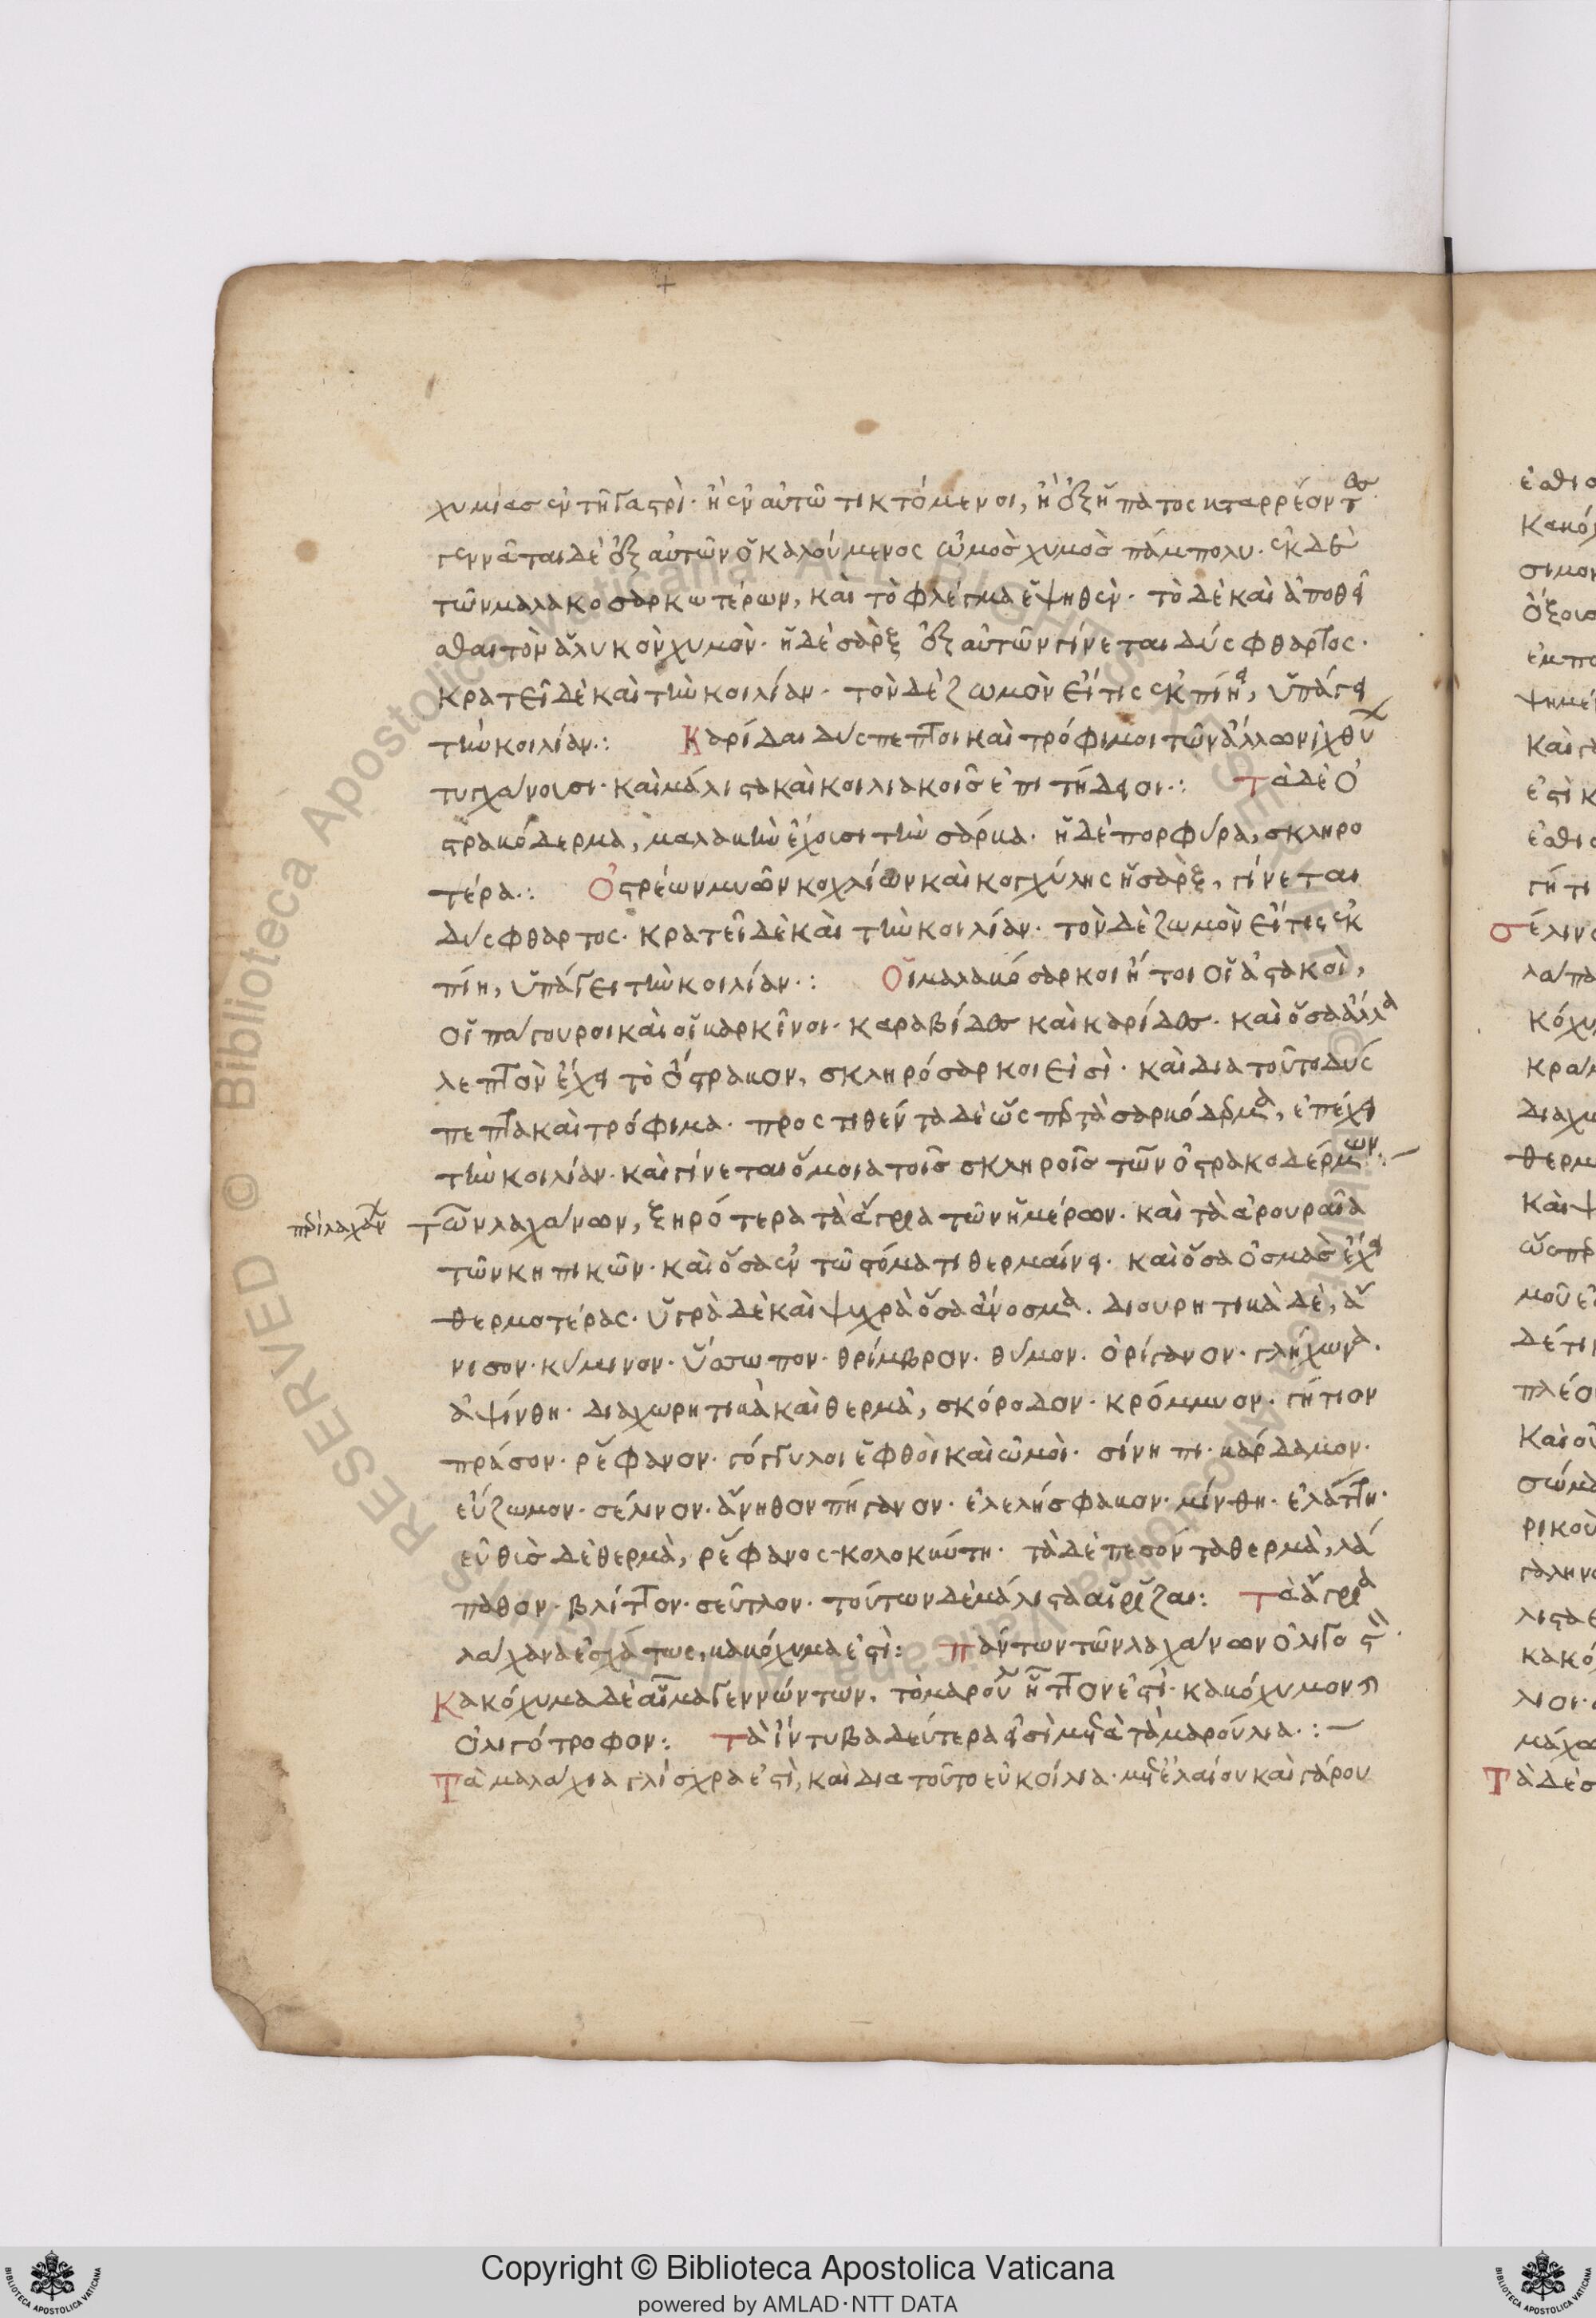 χυμίας ἐν τῆ γαστρὶ· ἢ ἐν αὐτῶ τικτόμενοι, ἢ ἐξ ἥπατος καταρρέοντες·
γεννᾶται δὲ ἐξ αὐτῶν ὁ καλούμενος ὠμὸς χυμὸς πάμπολυ· ἐκ δὲ
τῶν μαλακοσαρκωτέρων, καὶ τὸ φλέγμα ἑψηθὲν· τὸ δὲ καὶ ἀποθεῖ
σθαι τὸν ἁλυκὸν χυμὸν· ἡ δὲ σὰρξ ἐξ αὐτῶν γίνεται δύσφθαρτος·
κρατεῖ δὲ καὶ τὴν κοιλίαν· τὸν δὲ ζωμὸν εἴ τις ἐκπίη, ὑπάγει
τὴν κοιλίαν.: Καρίδαι δύσπεπτοι καὶ τρόφιμοι τῶν ἄλλων ἰχθύων
τυγχάνουσι· καὶ μάλιστα καὶ κοιλιακοῖς ἐπιτήδειοι.: Τὰ δὲ ὀ
στρακόδερμα, μαλακὴν ἔχουσι τὴν σάρκα· ἡ δὲ πορφύρα, σκληρο
τέρα.: Ὀστρέων μυῶν κοχλίων καὶ κογχύλης ἡ σὰρξ, γίνεται
δύσφθαρτος· κρατεῖ δὲ καὶ τὴν κοιλίαν· τὸν δὲ ζωμὸν εἴ τις ἐκ
πίη, ὑπάγει τὴν κοιλίαν.: Οἱ μαλακόσαρκοι ἤτοι οἱ ἀστακοὶ,
οἱ πάγουροι καὶ οἱ καρκῖνοι· καραβίδες καὶ καρίδες· καὶ ὅσα ἄλλα
λεπτὸν ἔχει τὸ ὄστρακον, σκληρόσαρκοι εἰσὶ· καὶ διατοῦτο δύσ
πεπτα καὶ τρόφιμα· προστιθέντα δὲ ὡς περ τὰ σαρκόδερμα, ἐπέχει
τὴν κοιλίαν· καὶ γίνεται ὅμοια τοῖς σκληροῖς τῶν ὀστρακοδέρμων:—
περὶ λαχάνων
Τῶν λαχάνων, ξηρότερα τὰ ἄγρια τῶν ἡμέρων· καὶ τὰ ἀρουραῖα
τῶν κηπικῶν· καὶ ὅσα ἐν τῶ στόματι θερμαίνει· καὶ ὅσα ὀσμὰς ἔχει
θερμοτέρας· ὑγρὰ δὲ καὶ ψυχρὰ ὅσα ἄνοσμα· διουρητικὰ δὲ, ἄ
νισον· κύμινον· ὕσσωπον· θρίμβρον· θύμον· ὀρίγανον· γλήχωνα·
ἀψίνθη· διαχωρητικὰ καὶ θερμὰ, σκόροδον· κρόμμυον· γήτιον
πράσον· ῥέφανον· γόγγυλοι ἑφθοὶ καὶ ὠμοὶ· σίνηπι· κάρδαμον·
εὔζωμον· σέλινον· ἄνηθον πήγανον· ἐλελήσφακον· μίνθη· ἐλάττη·
εὐθὺς δὲ θερμὰ, ῥέφανος· κολοκύτη· τὰ δὲ πεσόντα θερμὰ, λά
παθον· βλίττον· σεῦτλον· τούτων δὲ μάλιστα αἱ ῥίζαι: Τὰ ἄγρια
λάχανα ἐσχάτως, κακόχυμα ἐστὶ: Πάντων τῶν λαχάνων ὀλιγοστ
Κακόχυμα δὲ αἷμα γεννώντων. τὸ μαροῦλι ἧττον ἐστὶ· κακόχυμον καὶ
ὀλιγότροφον: Τὰ ἴντυβα δεύτερα εἰσὶ μετὰ τὰ μαρούλια.:—
Τὰ μαλάχια γλίσχρα ἐστὶ, καὶ διατοῦτο εὐκοίλια· μετὰ ἐλαίου καὶ γάρου
Copyright © Biblioteca Apostolica Vaticana
powered by AMLAD·NTT DATA